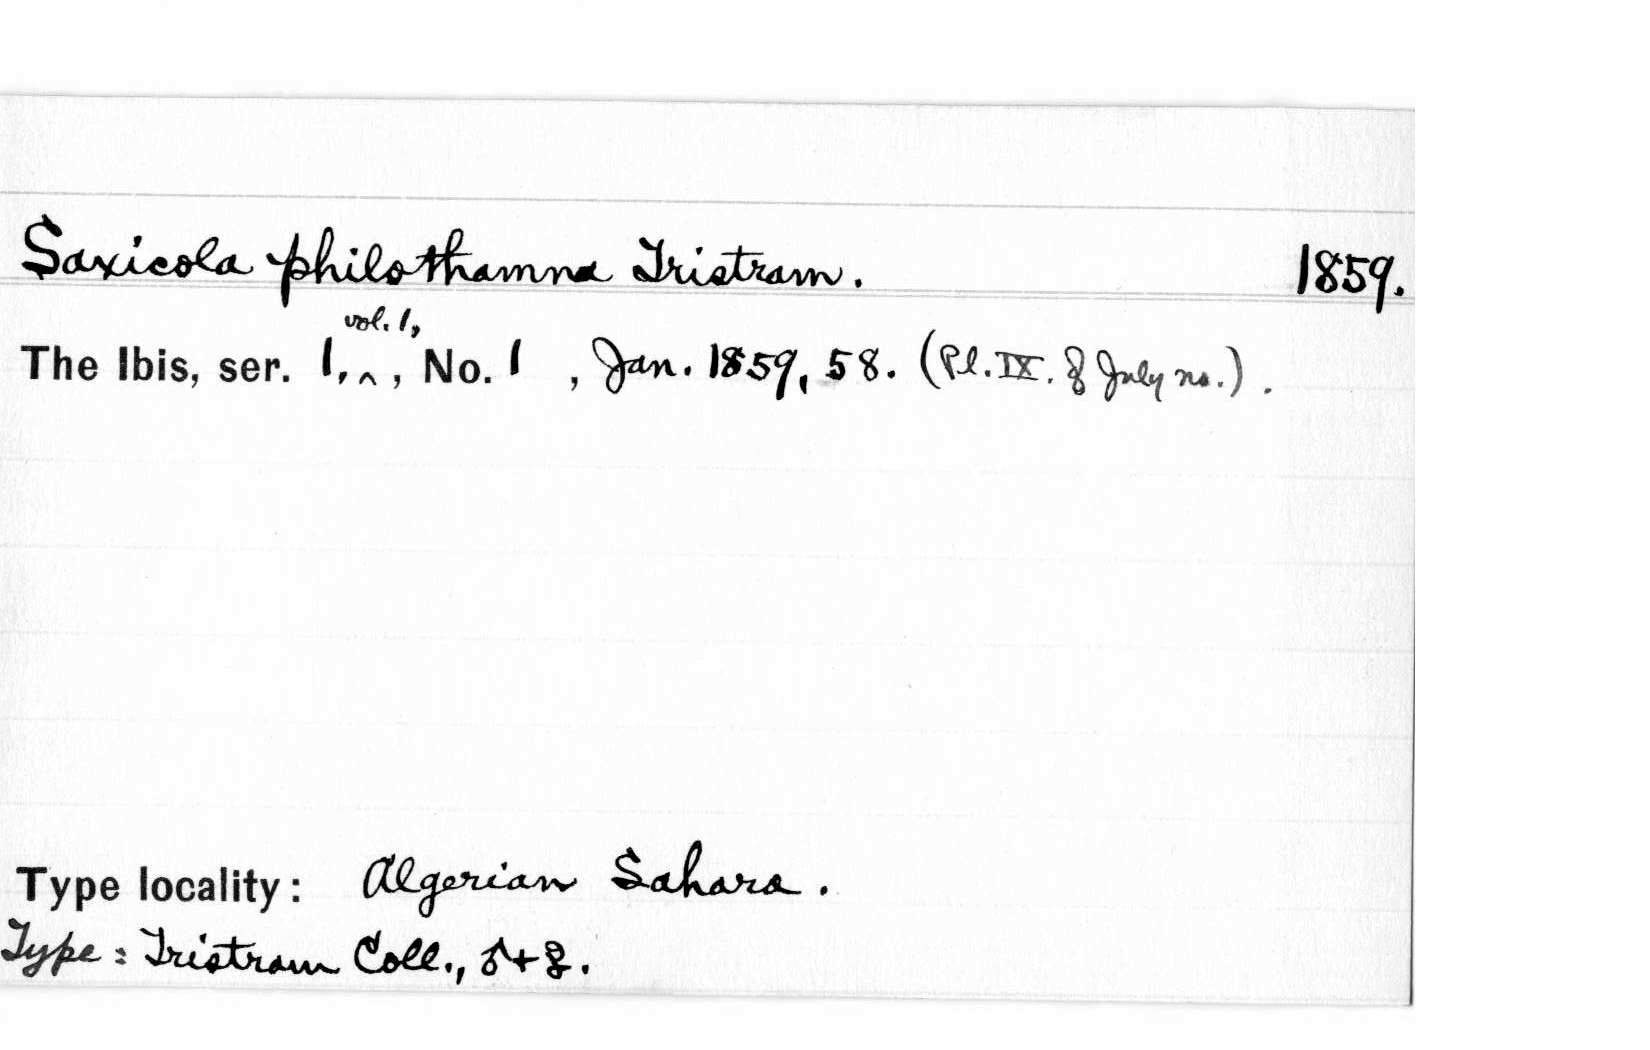 Saxicola philothamna Tristram. 1859.
The Ibis, ser. 1, ^ vol. 1, , No. 1 , Jan. 1859, 58. (Pl. IX. of July no.) .
Type locality: Algerian Sahara.
Type: Tristram Coll., ♂+♀.